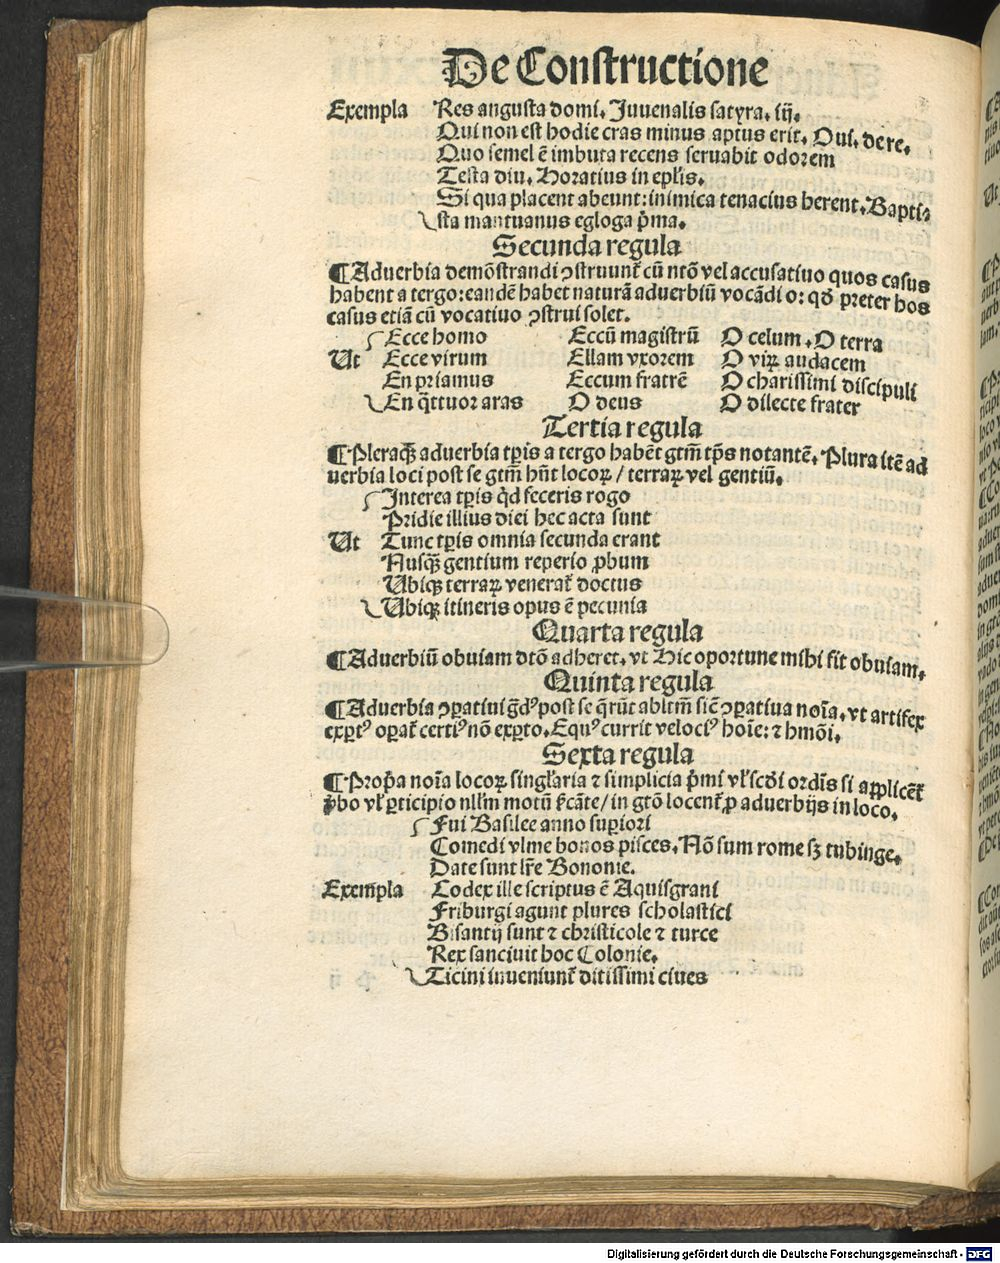 De Constructione
Exempla Res angusta domi. Juuenalis satyra. iij.
Qui non est hodie cras minus aptus erit. Oui. de re.
Quo semel ē imbuta recens seruabit odorem
Testa diu. Horatius in eplis.
Si qua placent abeunt: inimica tenacius herent. Bapti-
sta mantuanus egloga p̄ma.
Secunda regula
¶Aduerbia demōstrandi ꝯstruunt᷑ cū ntō vel accusatiuo quos casus
habent a tergo: eandē habet naturā aduerbiū vocādi o: qd̄ preter hos
casus etiā cū vocatiuo ꝯstrui solet.
Ecce homo Eccū magistrū O celum. O terra
Ut Ecce virum Ellam vxorem O viꝝ audacem
En priamus Eccum fratrē O charissimi discipuli
En q̄ttuor aras O deus O dilecte frater
Tertia regula
¶Pleraqꝫ aduerbia tp̄is a tergo habēt gtm̄ tp̄s notantē. Plura itē ad
uerbia loci post se gtm̄ hn̄t locoꝝ / terraꝝ vel gentiū.
Interea tp̄is qd̄ feceris rogo
Pridie illius diei hec acta sunt
Ut Tunc tp̄is omnia secunda erant
Nusqꝫ gentium reperio ꝓbum
Ubiqꝫ terraꝝ venerat᷑ doctus
Ubiqꝫ itineris opus ē pecunia
Quarta regula
¶Aduerbiū obuiam dtō adheret. vt Hic oportune mihi fit obuiam.
Quinta regula
¶Aduerbia ꝯꝑatiui gd̄ꝰ post se q̄rūt abltm̄ sic̄ ꝯꝑatiua noīa. vt artifex
exꝑtꝰ oꝑat᷑ certiꝰ nō exꝑto. Equꝰ currit velociꝰ hoīe: ⁊ hmōi.
Sexta regula
¶Propͥa noīa locoꝝ singl'aria ⁊ simplicia pͥmi vl' scd̄i ordīs si applicēt᷑
v̄bo vl' ꝑticipio nll'm motū fcāte / in gtō locent᷑ ꝓ aduerbijs in loco.
Fui Basilee anno suꝑiori
Comedi vlme bonos pisces. Nō sum rome sꝫ tubinge.
Date sunt lr̄e Bononie.
Exempla Codex ille scriptus ē Aquisgrani
Friburgi agunt plures scholastici
Bisantij sunt ⁊ christicole ⁊ turce
Rex sanciuit hoc Colonie.
Ticini inueniunt᷑ ditissimi ciues
Digitalisierung gefördert durch die Deutsche Forschungsgemeinschaft - DFG